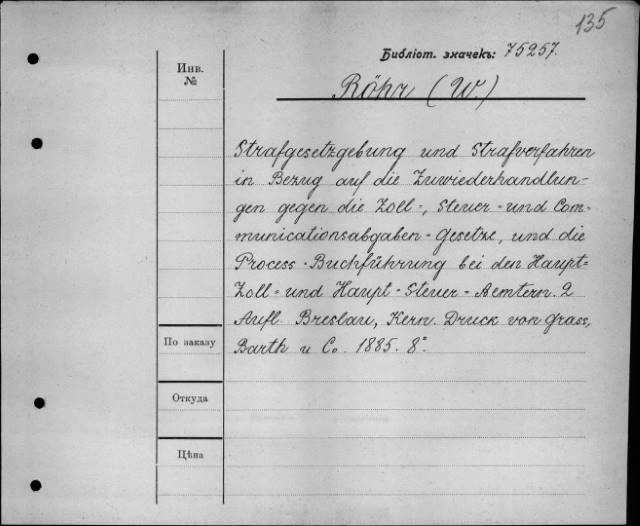 135
Библіот. значекъ: 75257.
Инв.
№
Röhr (W.)
Strafgesetzgebung und Strafverfahren
in Bezug auf die Zuwiederhandlun-
gen gegen die Zoll-, Steuer- und Com-
municationsabgaben-Gesetze, und die
Process-Buchführung bei den Haupt-
Zoll- und Haupt-Steuer-Aemtern. 2
Aufl. Breslau, Kern. Druck von Grass,
Barth u Co. 1885. 8°.
По заказу
Откуда
Цѣна